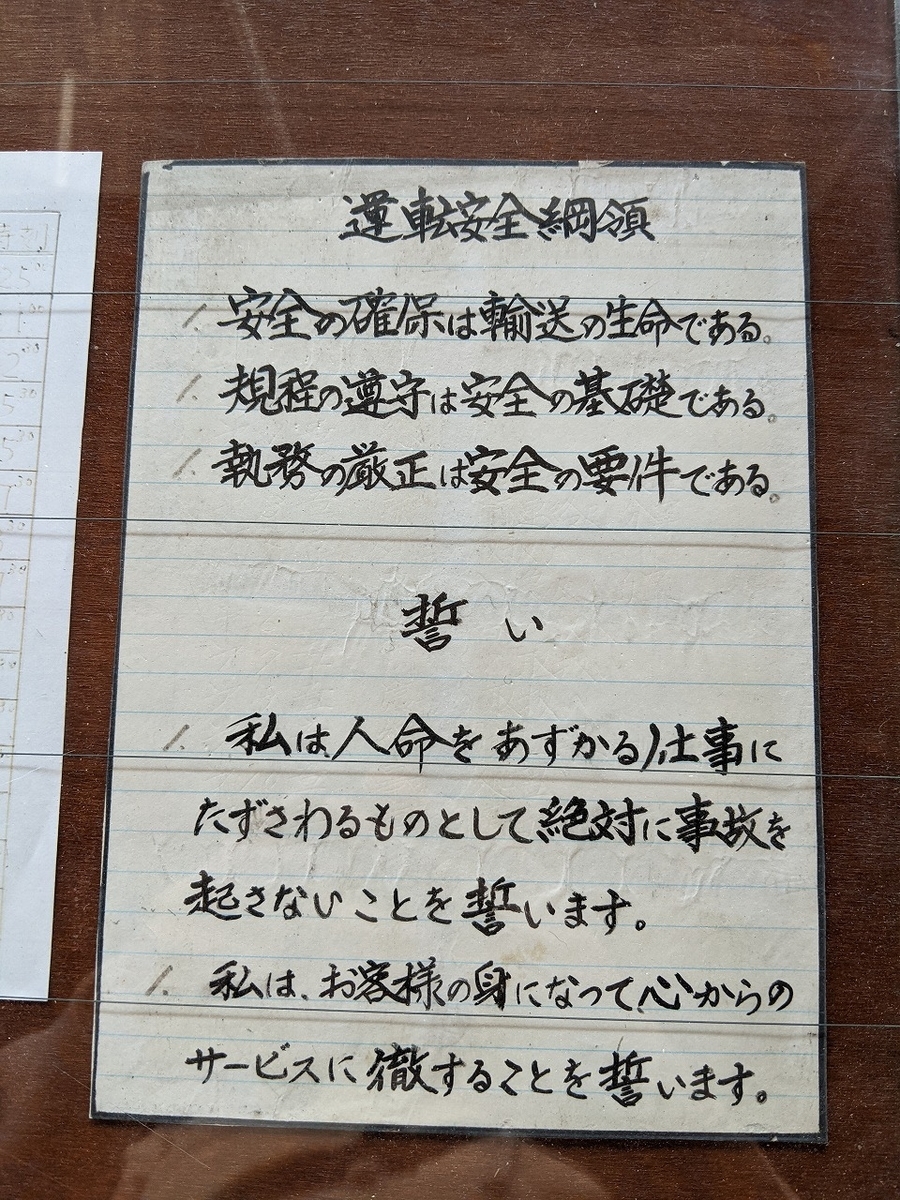 運転安全綱領
1. 安全の確保は輸送の生命である。
1. 規程の遵守は安全の基礎である。
1. 執務の厳正は安全の要件である。
誓い
1. 私は人命をあずかる仕事に
たずさわるものとして絶対に事故を
起さないことを誓います。
1. 私は、お客様の身になって心からの
サービスに徹することを誓います。